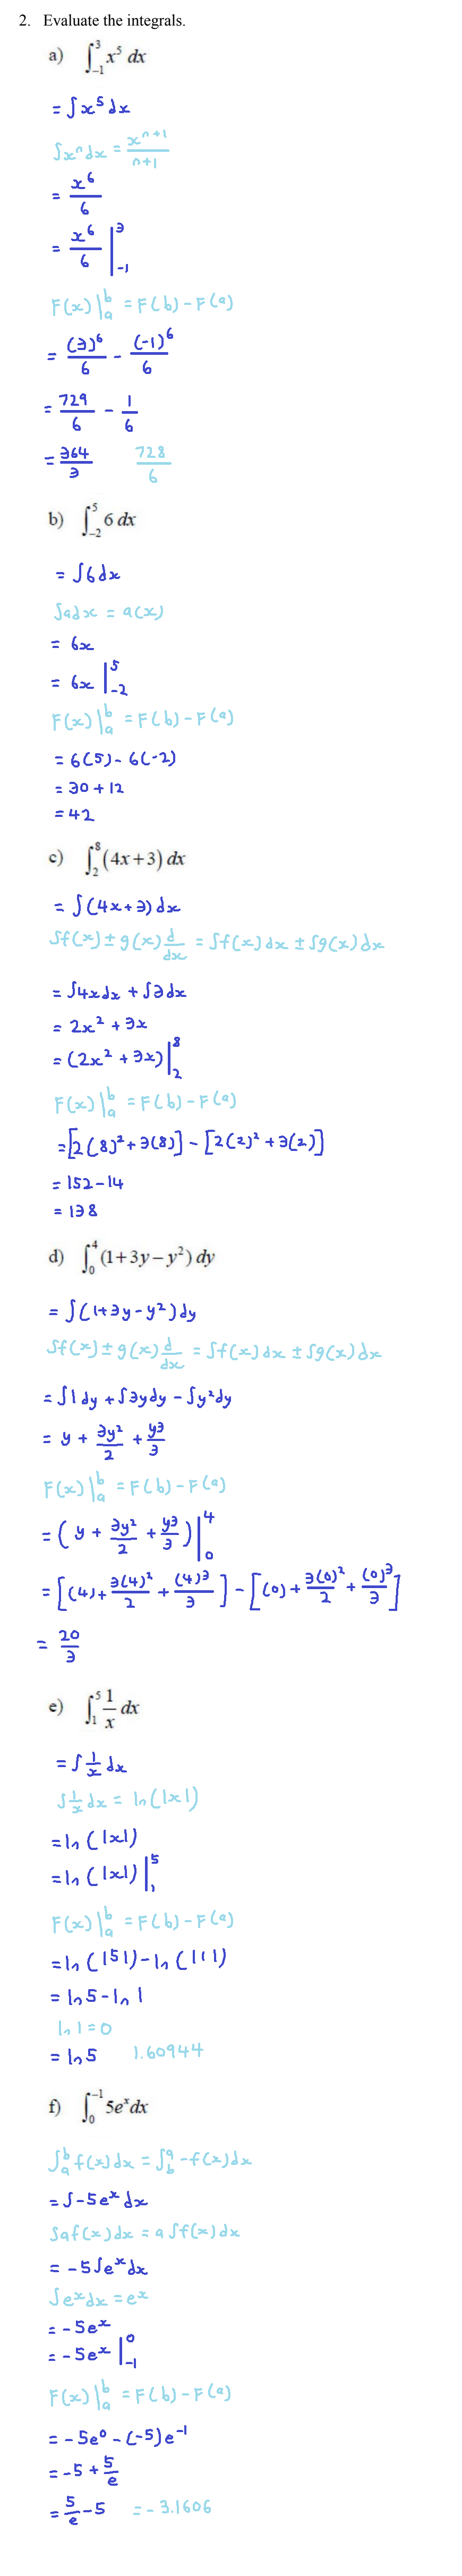 2. Evaluate the integrals.
a) ∫₋₁³ x⁵ dx
= ∫x⁵dx
∫xⁿdx = xⁿ⁺¹/n+1
= x⁶/6
= x⁶/6 |₋₁³
F(x)|ₐᵇ = F(b) - F(a)
= (3)⁶/6 - (-1)⁶/6
= 729/6 - 1/6
= 364/3 728/6
b) ∫₋₂⁵ 6 dx
= ∫6dx
∫adx = a(x)
= 6x
= 6x |₋₂⁵
F(x)|ₐᵇ = F(b) - F(a)
= 6(5) - 6(-2)
= 30 + 12
= 42
c) ∫₂⁸ (4x+3) dx
= ∫(4x+3)dx
∫f(x) ± g(x) d/dx = ∫f(x)dx ± ∫g(x)dx
= ∫4xdx + ∫3dx
= 2x² + 3x
= (2x² + 3x)|₂⁸
F(x)|ₐᵇ = F(b) - F(a)
= [2(8)² + 3(8)] - [2(2)² + 3(2)]
= 152 - 14
= 138
d) ∫₀⁴ (1+3y−y²) dy
= ∫(1+3y-y²)dy
∫f(x) ± g(x) d/dx = ∫f(x)dx ± ∫g(x)dx
= ∫1dy + ∫3ydy - ∫y²dy
= y + 3y²/2 + y³/3
F(x)|ₐᵇ = F(b) - F(a)
= (y + 3y²/2 + y³/3)|₀⁴
= [(4) + 3(4)²/2 + (4)³/3] - [(0) + 3(0)²/2 + (0)³/3]
= 20/3
e) ∫₁⁵ 1/x dx
= ∫1/x dx
∫1/x dx = ln(|x|)
= ln(|x|)
= ln(|x|)|₁⁵
F(x)|ₐᵇ = F(b) - F(a)
= ln(|5|) - ln(|1|)
= ln5 - ln1
ln1 = 0
= ln5 1.60944
f) ∫₀⁻¹ 5eˣdx
∫ₐᵇ f(x)dx = ∫ᵇᵃ -f(x)dx
= ∫-5eˣdx
∫af(x)dx = a∫f(x)dx
= -5∫eˣdx
∫eˣdx = eˣ
= -5eˣ
= -5eˣ |₋₁⁰
F(x)|ₐᵇ = F(b) - F(a)
= -5e⁰ - (-5)e⁻¹
= -5 + 5/e
= 5/e - 5 = -3.1606